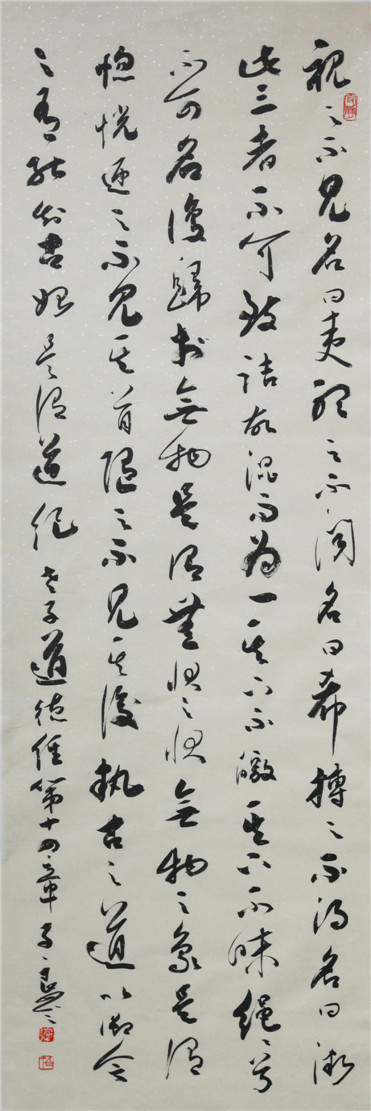 視之不見名曰夷聽之不聞名曰希搏之不得名曰微
此三者不可致詰故混而為一其上不皦其下不昧繩繩兮
不可名復歸於無物是謂無狀之狀無物之象是謂
惚恍迎之不見其首隨之不見其後執古之道以御今
之有能知古始是謂道紀老子道德經第十四章